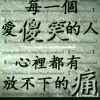 每一個
愛傻笑的人
心裡都有
放不下的痛